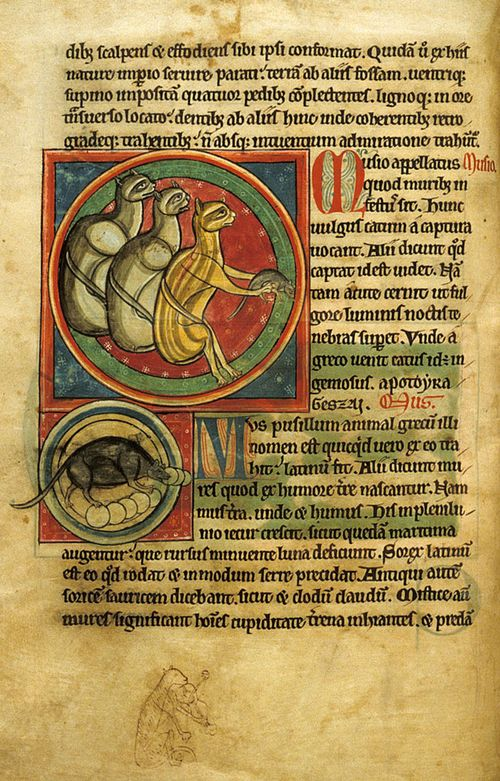 dibꝫ scalpens & effodiens sibi ipsi conformat. Quidā ū ex hiis
nature imꝑio seruire parati. terrā ab aliis fossam. uentriqꝫ
supino impositā quatuor pedibꝫ cōplectentes. lignoqꝫ in ore
tᷓsuerso locato. dentibꝫ ab aliis hinc inde coherentibꝫ retro
gradeqꝫ trahentibꝫ. n̄ absqꝫ intuentium admiratione trahūt᷑.
Musio appellatus Musio.
quod muribꝫ in
festus sit. Hunc
uulgus catum a captura
uocant. Alii dicunt qd̄
captat id est uidet. Nā
tam acute cernit ut ful
gore luminis noctis te
nebras superet. Unde a
greco uenit catus id ē in
geniosus. apotoyra
geszai. Mus.
Mus pusillum animal grecū illi
nomen est quicqd uero ex eo tra
hit᷑ latinum fit. Alii dicunt mu
res quod ex humore t̄re nascantur. Nam
mus t̄ra. unde & humus. His in plenilu
nio iecur crescit. sicut quedā maritima
augentur. que rursus minuente luna deficiunt. Sorex latinū
est eo qd rodat & in modum serre precidat. Antiqui autē
soricē sauricem dicebant. sicut & clodū claudū. Mistice aū
mures significant hoīes cupiditate t̄rena inhiantes. & predā